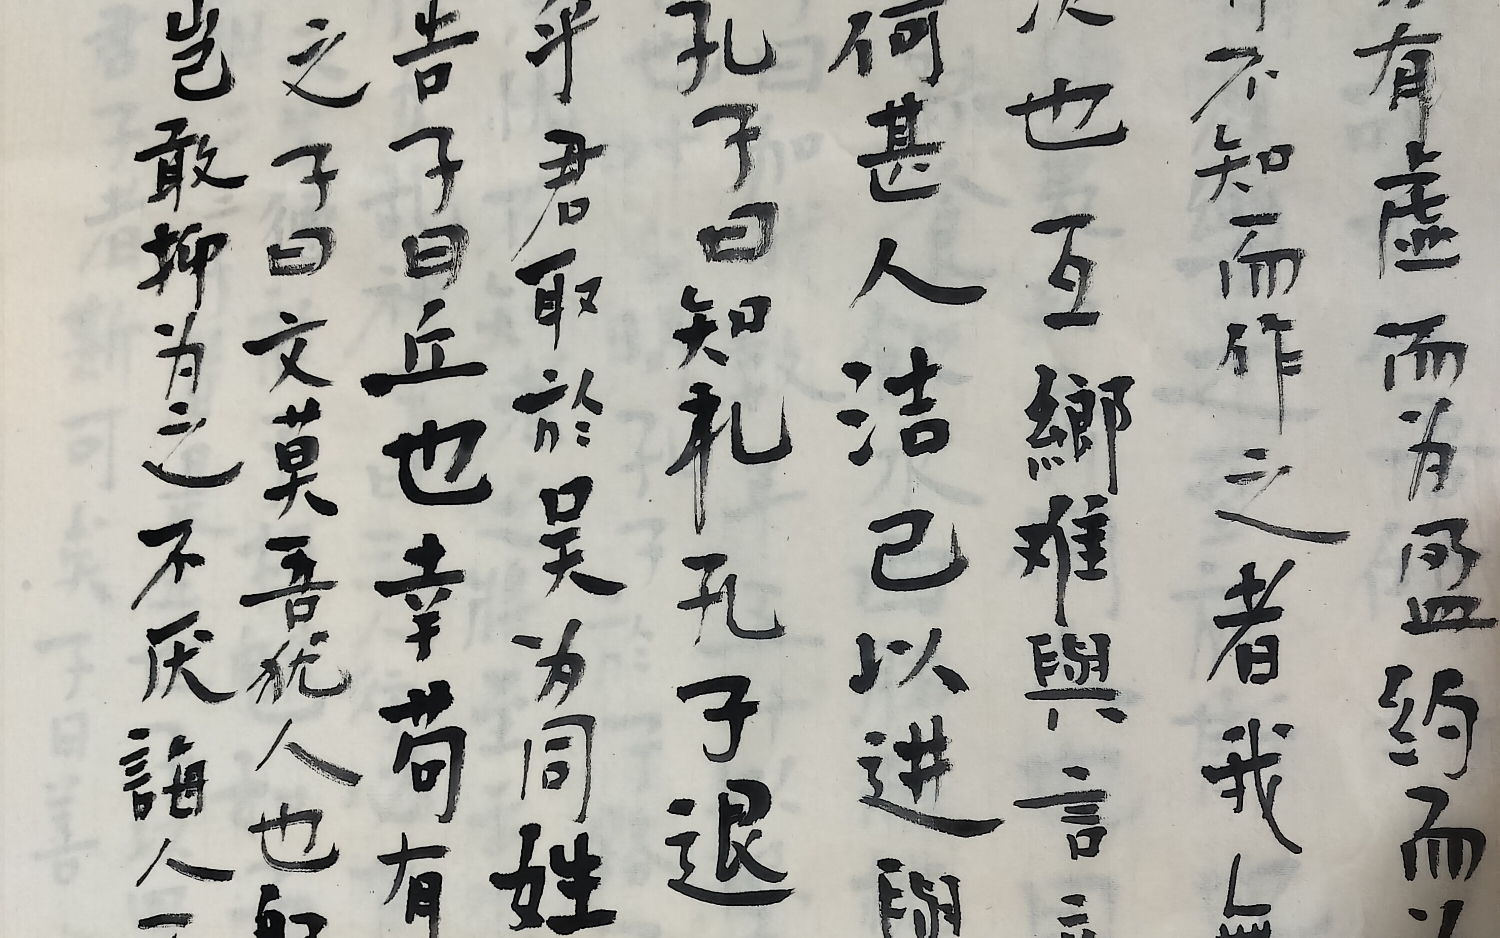 有虛而为盈约而
不知而作之者我
也互鄉难與言
何甚人洁己以进與
孔子曰知礼孔子退
乎君取於吴为同姓
告子曰丘也幸苟有
之子曰文莫吾犹人也躬
岂敢抑为之不厌誨人